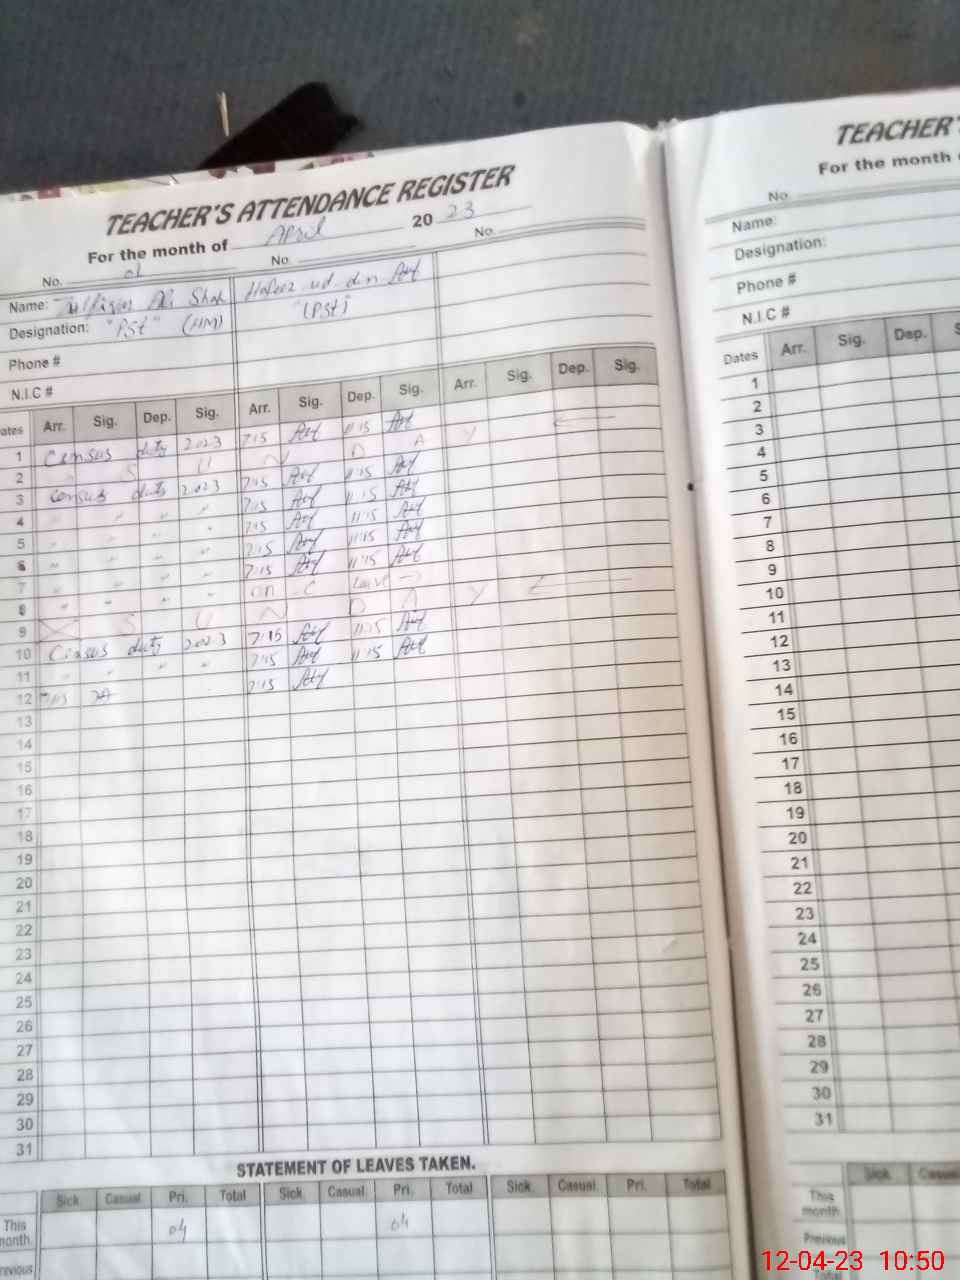 TEACHER'S ATTENDANCE REGISTER
For the month of April 20 23
No. 01 No. No.
Name: Ali Shah Hafeez ud din
Designation: "PST" (HM) "(PST)"
Phone #
N.I.C #
Dates Arr. Sig. Dep. Sig. Arr. Sig. Dep. Sig. Arr. Sig. Dep. Sig.
1 Census duty 2023 7:15 11:15
2 S U N D A Y
3 Census duty 2023 7:15 11:15
4 " " " " 7:15 11:15
5 " " " " 7:15 11:15
6 " " " " 7:15 11:15
7 " " " " 7:15 11:15
8 " " " " on C leave
9 S U N D A Y
10 Census duty 2023 7:15 11:15
11 " " " 7:15 11:15
12 7:15 7:15
13
14
15
16
17
18
19
20
21
22
23
24
25
26
27
28
29
30
31
STATEMENT OF LEAVES TAKEN.
Sick. Casual. Pri. Total Sick. Casual. Pri. Total Sick. Casual. Pri. Total
This month. 04 04
Previous
TEACHER'S
For the month
No.
Name:
Designation:
Phone #
N.I.C #
Dates Arr. Sig. Dep. S
1
2
3
4
5
6
7
8
9
10
11
12
13
14
15
16
17
18
19
20
21
22
23
24
25
26
27
28
29
30
31
Sick. Casual
This month.
Previous
Total
12-04-23 10:50